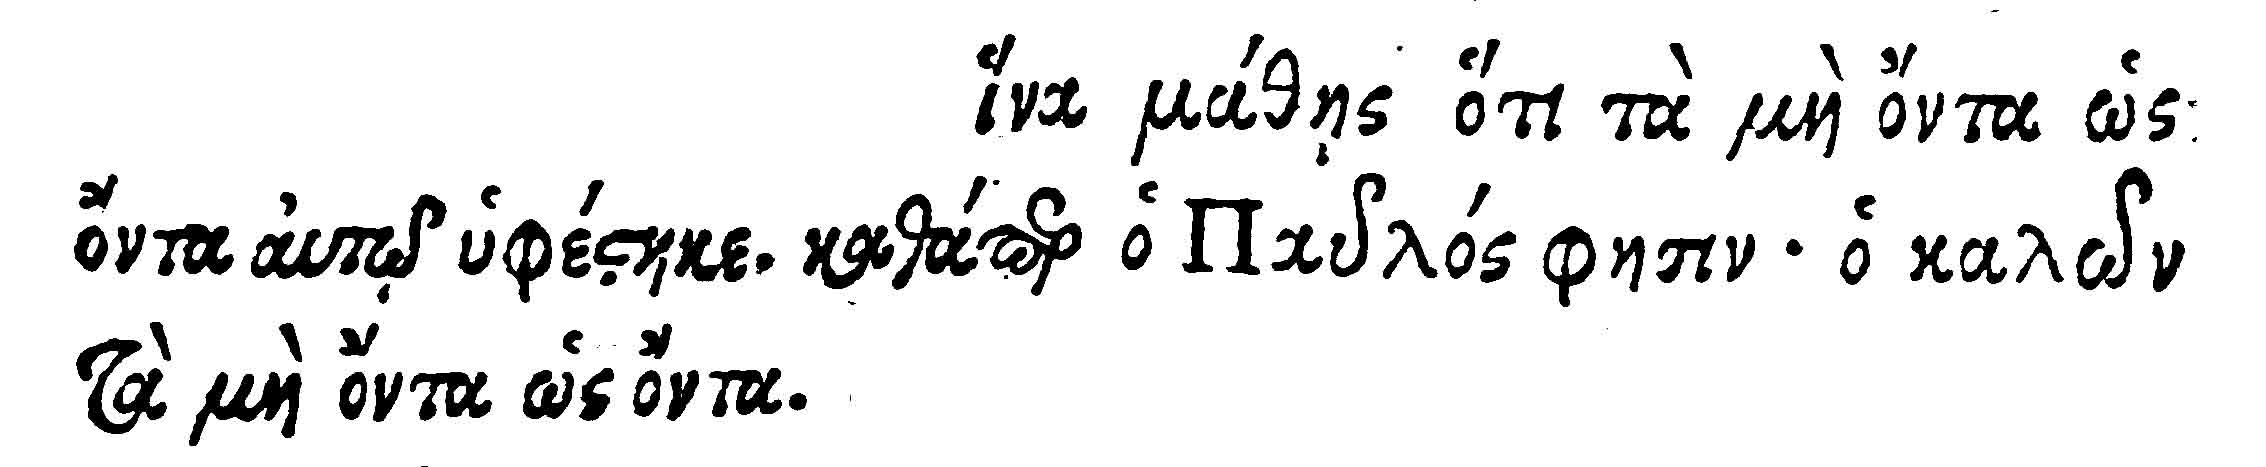 ἵνα μάθῃς ὅτι τὰ μὴ ὄντα ὡς
ὄντα ἀυτῷ ὑφέστηκε. καθάπερ ὁ Παυλός φησιν · ὁ καλῶν
τὰ μὴ ὄντα ὡς ὄντα.